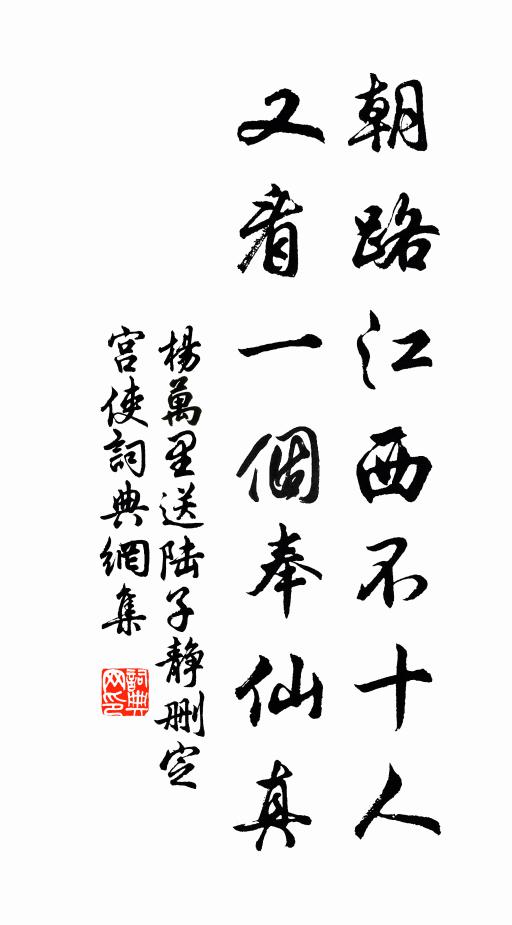 朝路江西不十人
又看一個奉仙真
楊萬里送陆子静删定
宮使詞典網集
詞典
网印